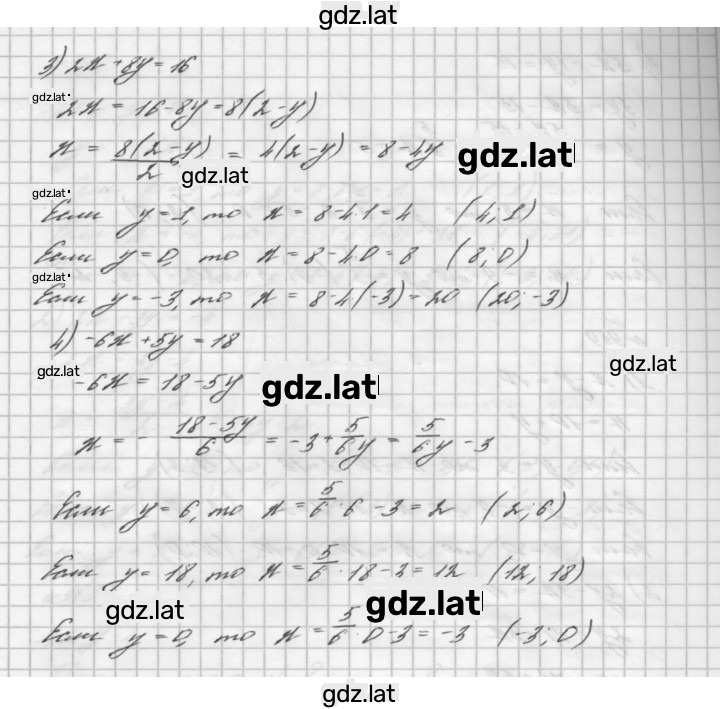 gdz.lat
3) 2x + 8y = 16
gdz.lat
2x = 16 - 8y = 8(2 - y)
x = 8(2 - y)/2 = 4(2 - y) = 8 - 4y
gdz.lat
gdz.lat
gdz.lat
Если y = 1, то x = 8 - 4·1 = 4 (4; 1)
Если y = 0, то x = 8 - 4·0 = 8 (8; 0)
gdz.lat
Если y = -3, то x = 8 - 4(-3) = 20 (20; -3)
4) -6x + 5y = 18
gdz.lat
gdz.lat
-6x = 18 - 5y
gdz.lat
x = - 18 - 5y/6 = -3 + 5/6 y = 5/6 y - 3
Если y = 6, то x = 5/6 · 6 - 3 = 2 (2; 6)
Если y = 18, то x = 5/6 · 18 - 3 = 12 (12; 18)
gdz.lat
gdz.lat
Если y = 0, то x = 5/6 · 0 - 3 = -3 (-3; 0)
gdz.lat